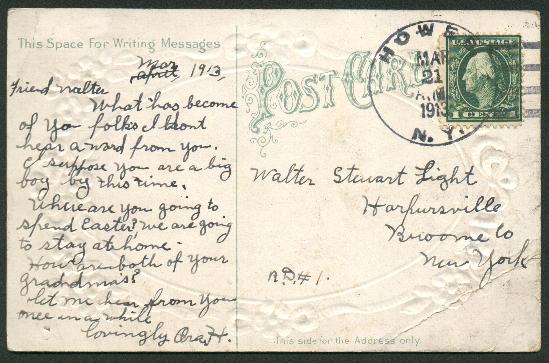 This Space For Writing Messages
Mar
april, 1913,
Friend Walter
What has become
of you folks I dont
hear a word from you.
I suppose you are a big
boy by this time.
Where are you going to
spend Easter? We are going
to stay at home.
How are both of your
grandmas?
let me hear from you
once in a while
lovingly Ora, H.
POST CARD
HOWES
MAR
21
1913
N.Y.
U.S. POSTAGE
1 CENT 1
Walter Stewart Light
Harpursville
Broome Co
New York
R.D.# 1.
This side for the Address only